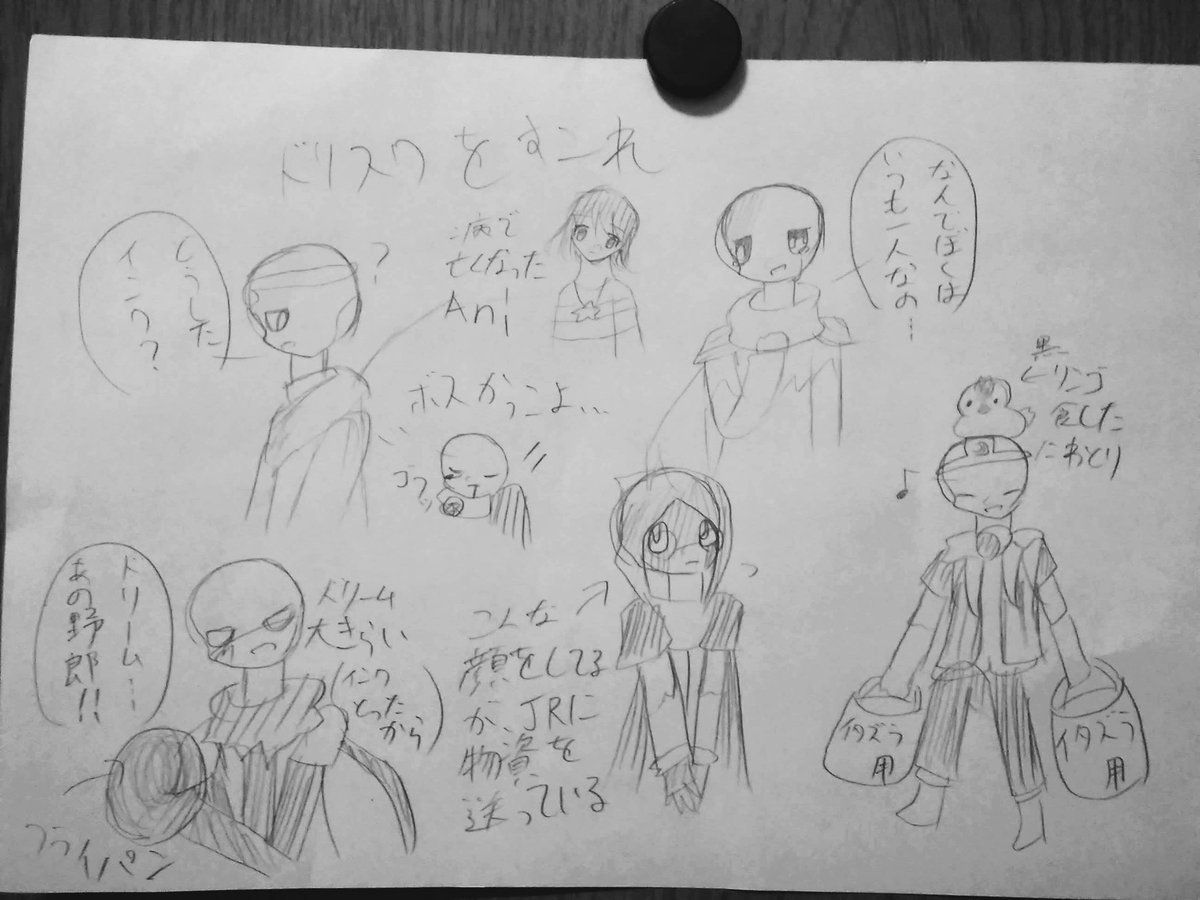 ドリスワをすこれ
どうした
インク？
？
病で
亡くなった
Ani
なんでぼくは
いつも一人なの…
ボスかっこよ…
ゴフッ
黒
リンゴ
食した
にわとり
♪
ドリーム…
あの野郎!!
ドリーム
大きらい
(インク
とった
から)
フライパン
こんな
顔をしてる
が、JRに
物資を
送っている
イタズラ
用
イタズラ
用